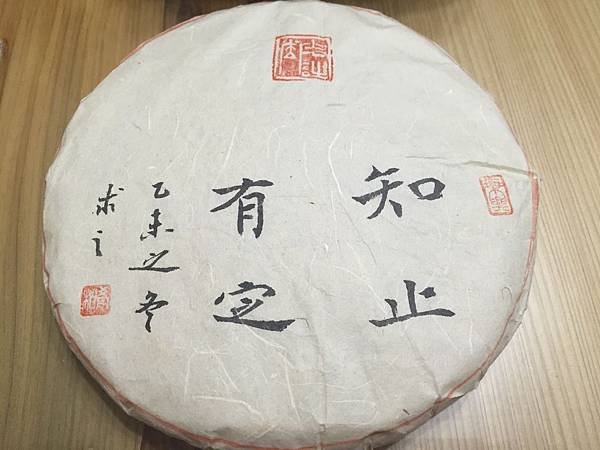 知止
有定
乙未之冬
求之